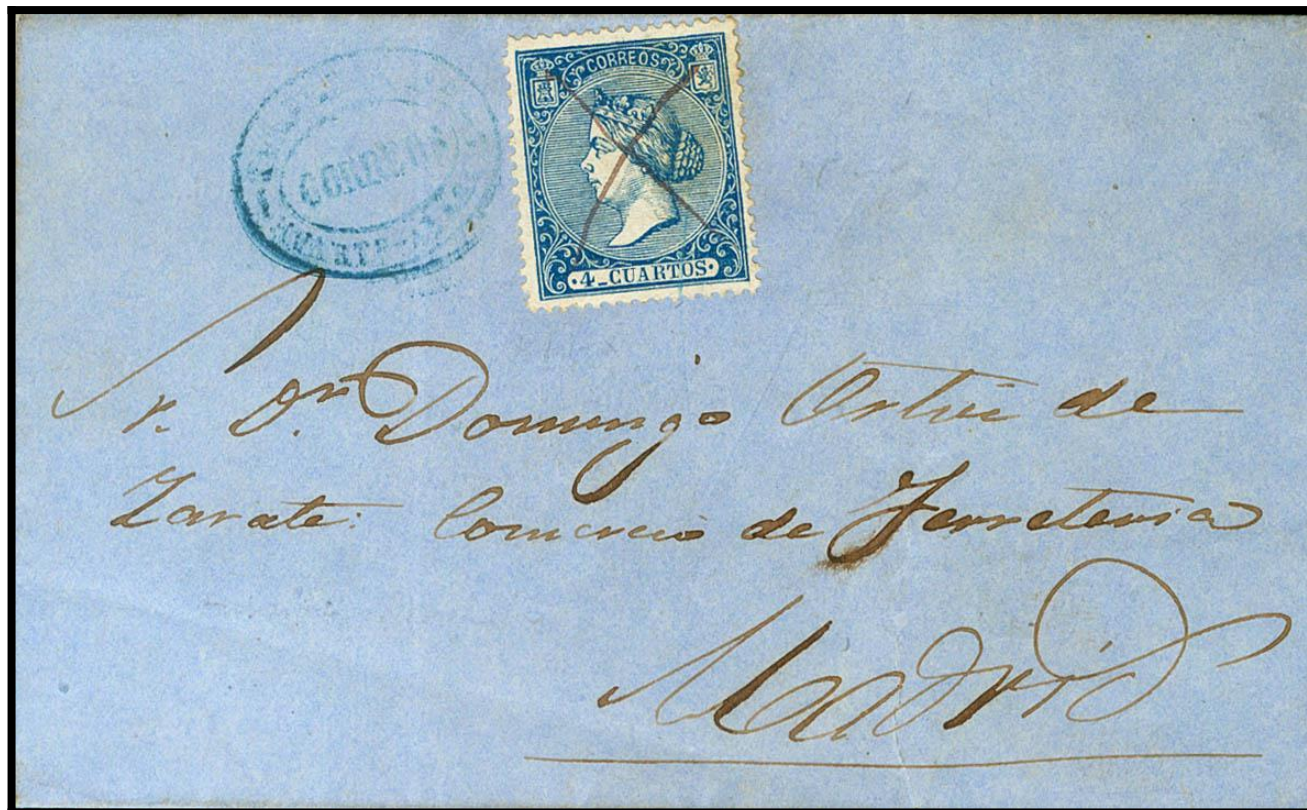 CORREOS
4_CUARTOS
Sr. Dn. Domingo Ortiz de
Zarate: Comercio de Ferreteria
Madrid